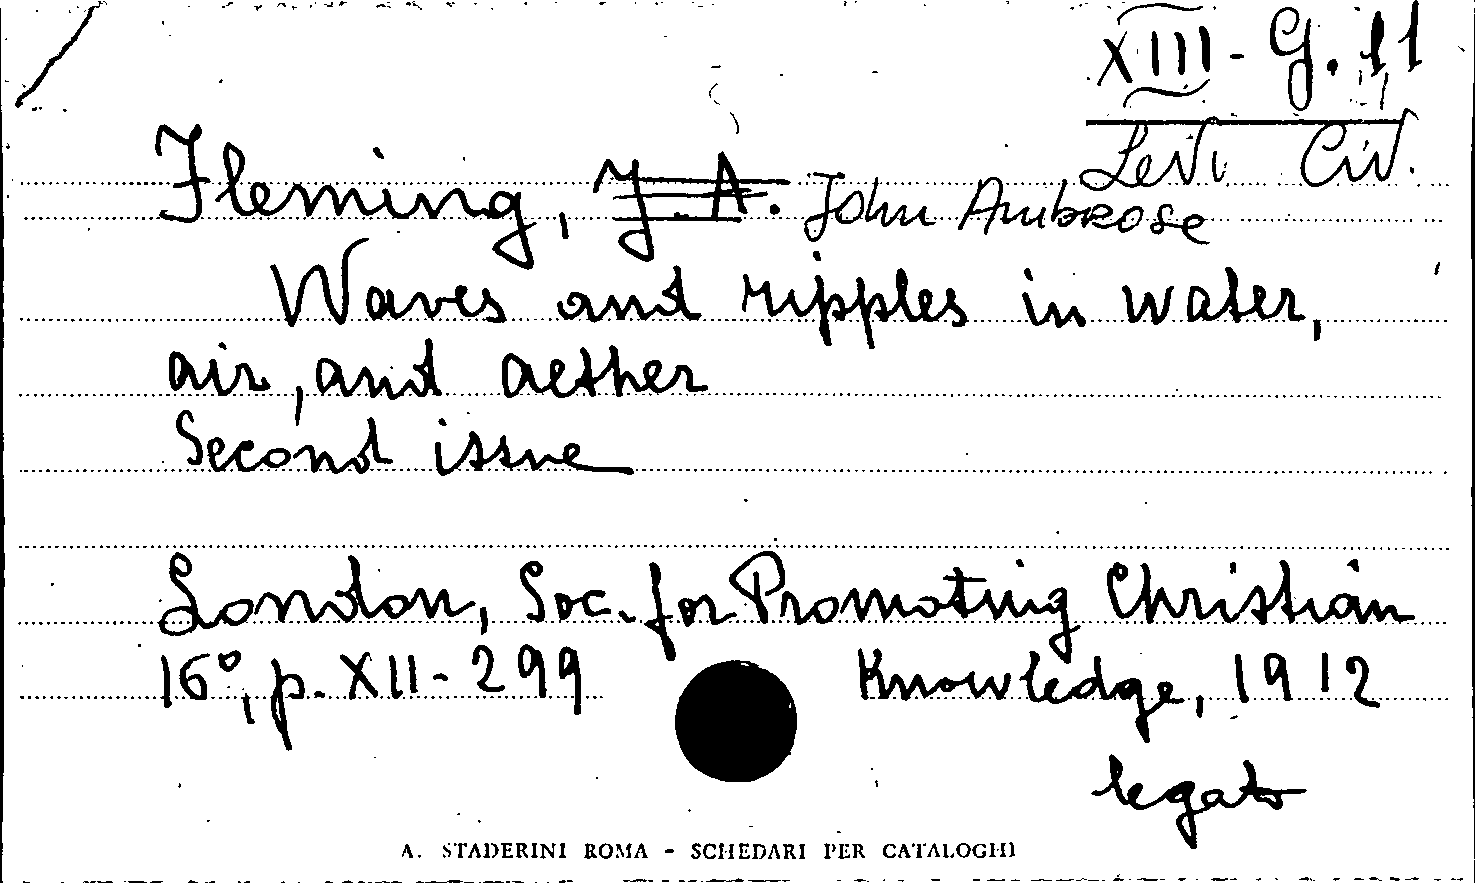 XIII - G. 11
Levi Civ.
Fleming, J. A. John Ambrose
Waves and ripples in water,
air, and aether
Second issue
London, Soc. for Promoting Christian
16°, p. XII - 299 Knowledge, 1912
legato
A. STADERINI ROMA - SCHEDARI PER CATALOGHI